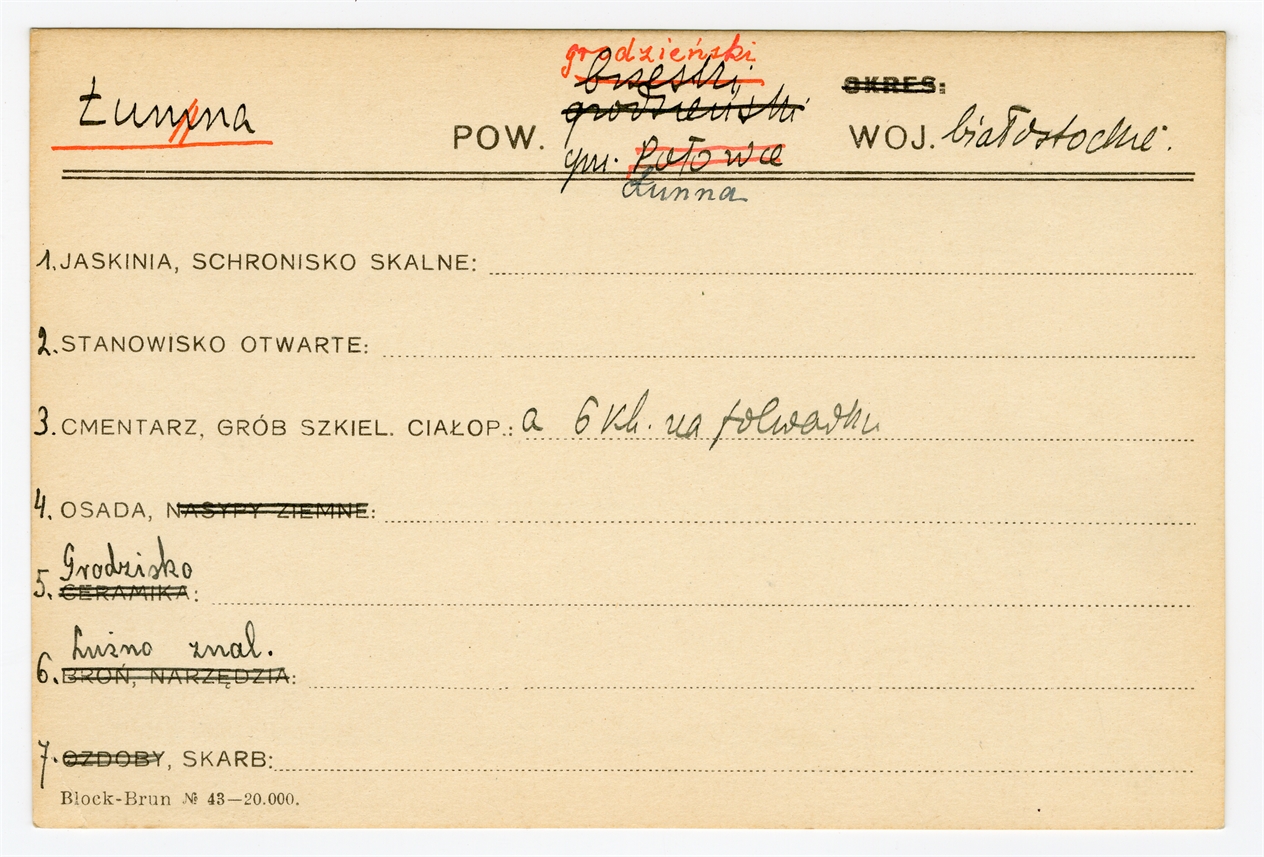 grodzieński
Łunna
brzeski
grodzieński
OKRES:
POW.
WOJ. białostockie.
gm. Rołowce
Łunna
1. JASKINIA, SCHRONISKO SKALNE:
2. STANOWISKO OTWARTE:
3. CMENTARZ, GRÓB SZKIEL. CIAŁOP.: a 6 kl. na folwarku
4. OSADA, NASYPY ZIEMNE:
Grodzisko
5. CERAMIKA:
Luźno znal.
6. BROŃ, NARZĘDZIA:
7. OZDOBY, SKARB:
Block-Brun № 43—20.000.